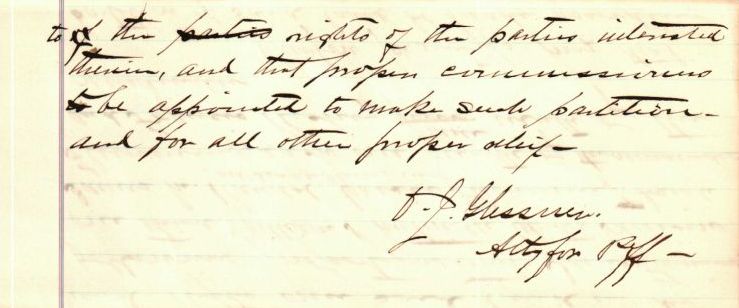 to of the parties rights of the parties interested
therein, and that proper commissioners
to be appointed to make such partition -
and for all other proper relief -
O. J. Glessner.
Atty for Plff -